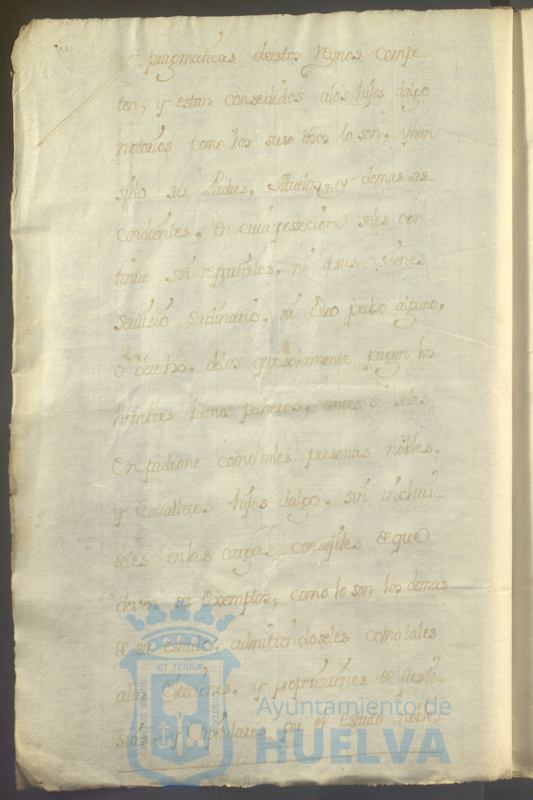 y pragmaticas destos Reynos compe-
ten, y estan consedidos alos hijos dalgo
notarios como los suso dhos lo son, y han
sido sus Padres, Abuelos, y demas as-
cendientes, en cuia possecion seles con-
tinue sin repartirles, ni a sus vienes
servicio Ordinario, ni otro pecho alguno,
o derecho, delos que solamente pagan los
hombres buenos pecheros, antes si seles
Empadrone como tales personas nobles,
y Cavalleros hijos dalgo, sin incluir-
seles en las cargas consejiles de que
deven ser Exemptos, como lo son los demas
de su estado, admitiendoseles como tales
alas Elecciones, y proposiciones de Justi-
sias y Capitulares por el Estado noble
ET TERRÆ
Ayuntamiento de
HUELVA